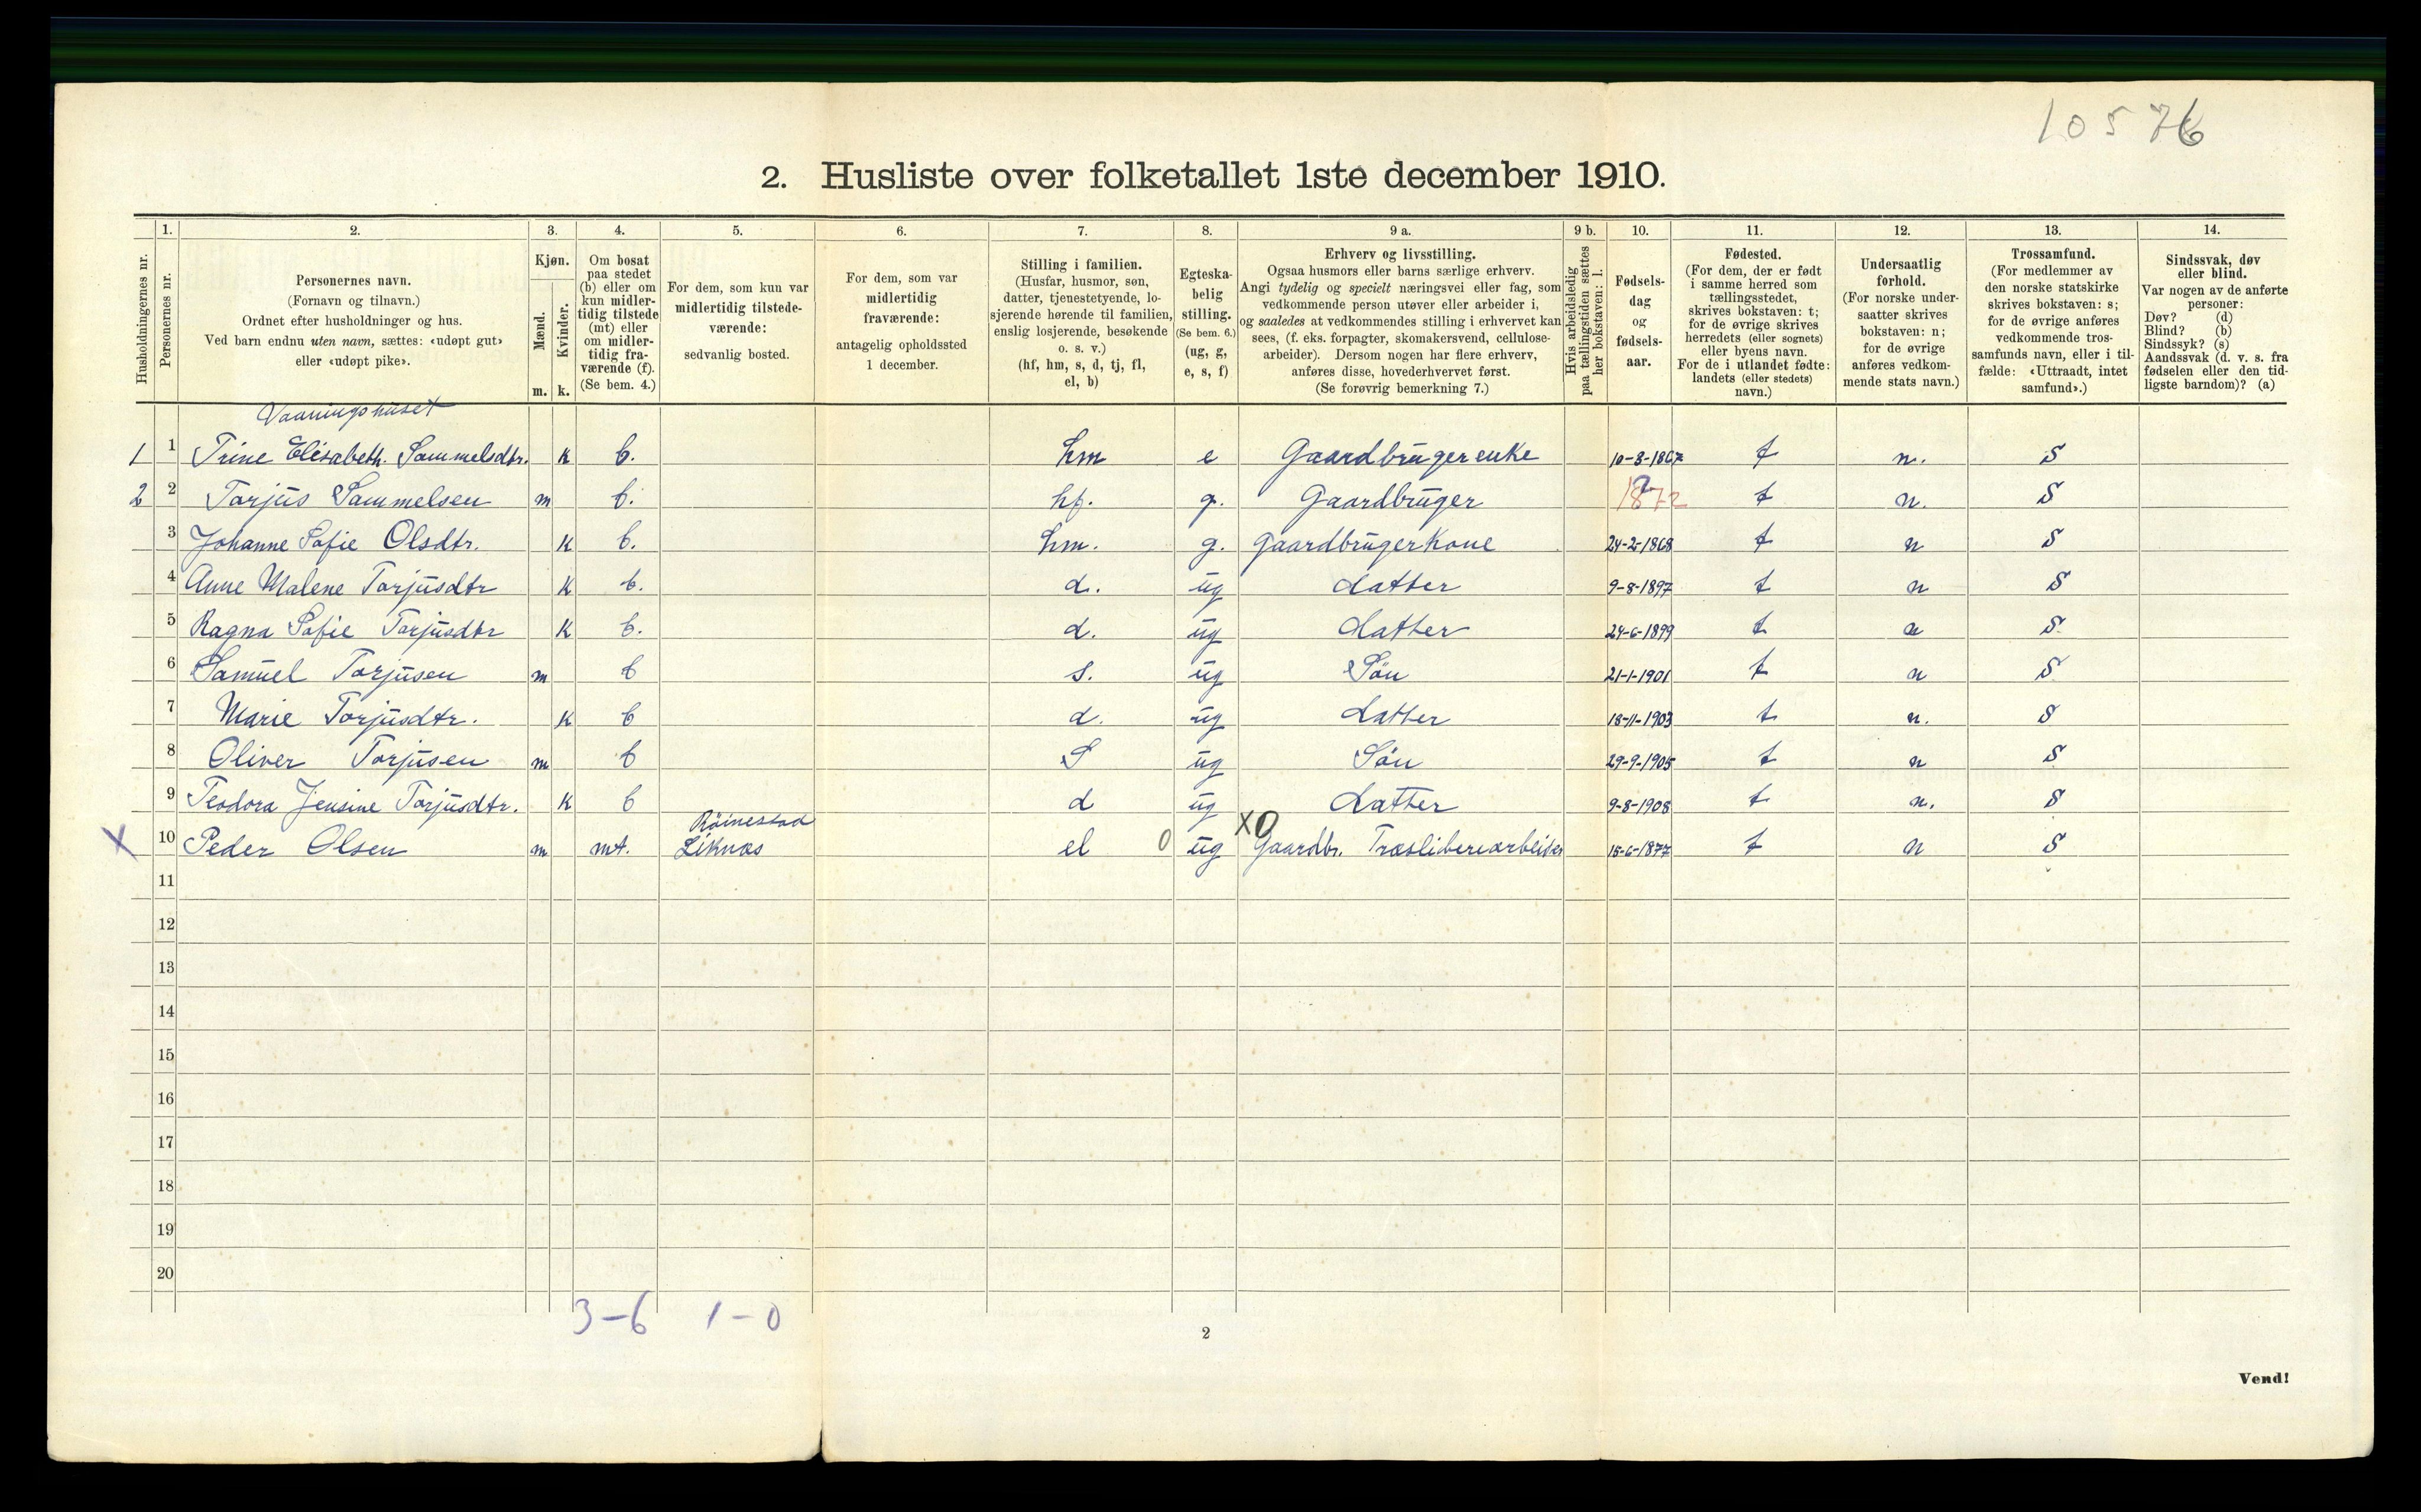 10576
2. Husliste over folketallet 1ste december 1910.
Husholdningernes nr.
1.
Personernes nr.
2.
Personernes navn.
(Fornavn og tilnavn.)
Ordnet efter husholdninger og hus.
Ved barn endnu uten navn, sættes: «udøpt gut»
eller «udøpt pike».
3.
Kjøn.
Mænd.
Kvinder.
m. k.
4.
Om bosat
paa stedet
(b) eller om
kun midler-
tidig tilstede
(mt) eller
om midler-
tidig fra-
værende (f).
(Se bem. 4.)
5.
For dem, som kun var
midlertidig tilstede-
værende:
sedvanlig bosted.
6.
For dem, som var
midlertidig
fraværende:
antagelig opholdssted
1 december.
7.
Stilling i familien.
(Husfar, husmor, søn,
datter, tjenestetyende, lo-
sjerende hørende til familien,
enslig losjerende, besøkende
o. s. v.)
(hf, hm, s, d, tj, fl,
el, b)
8.
Egteska-
belig
stilling.
(Se bem. 6.)
(ug, g,
e, s, f)
9 a.
Erhverv og livsstilling.
Ogsaa husmors eller barns særlige erhverv.
Angi tydelig og specielt næringsvei eller fag, som
vedkommende person utøver eller arbeider i,
og saaledes at vedkommendes stilling i erhvervet kan
sees, (f. eks. forpagter, skomakersvend, cellulose-
arbeider). Dersom nogen har flere erhverv,
anføres disse, hovederhvervet først.
(Se forøvrig bemerkning 7.)
9 b.
Hvis arbeidsledig
paa tællingstiden sættes
her bokstaven: l.
10.
Fødsels-
dag
og
fødsels-
aar.
11.
Fødested.
(For dem, der er født
i samme herred som
tællingsstedet,
skrives bokstaven: t;
for de øvrige skrives
herredets (eller sognets)
eller byens navn.
For de i utlandet fødte:
landets (eller stedets)
navn.)
12.
Undersaatlig
forhold.
(For norske under-
saatter skrives
bokstaven: n;
for de øvrige
anføres vedkom-
mende stats navn.)
13.
Trossamfund.
(For medlemmer av
den norske statskirke
skrives bokstaven: s;
for de øvrige anføres
vedkommende tros-
samfunds navn, eller i til-
fælde: «Uttraadt, intet
samfund».)
14.
Sindssvak, døv
eller blind.
Var nogen av de anførte
personer:
Døv? (d)
Blind? (b)
Sindssyk? (s)
Aandssvak (d. v. s. fra
fødselen eller den tid-
ligste barndom)? (a)
Vaaningshuset
1 1 Trine Elisabeth. Sammelsdtr. k b. hm e Gaardbrugerenke 10-8-1867 t n. S
2 2 Torjus Sammelsen m b. hf. g. Gaardbruger 1872 t n. S
3 Johanne Sofie Olsdtr. k b. hm. g. Gaardbrugerkone 24-2-1868 t n S
4 Anne Malene Torjusdtr k b. d. ug datter 9-8-1897 t n S
5 Ragna Sofie Torjusdtr k b. d. ug datter 24-6-1899 t n S.
6 Samuel Torjusen m b s. ug Søn 21-1-1901 t n S
7 Marie Torjusdtr. k b d. ug datter 18-11-1903 t n. S
8 Oliver Torjusen m b S ug Søn 29-9-1905 t n S
9 Teodora Jensine Torjusdtr. k b d ug datter 9-8-1908 t n. S
Röinestad
X 10 Peder Olsen m mt. Liknæs el 0 ug X0 Gaardbr. Træsliberiarbeider 15-6-1877 t n S
11
12
13
14
15
16
17
18
19
20
3-6 1-0
2
Vend!